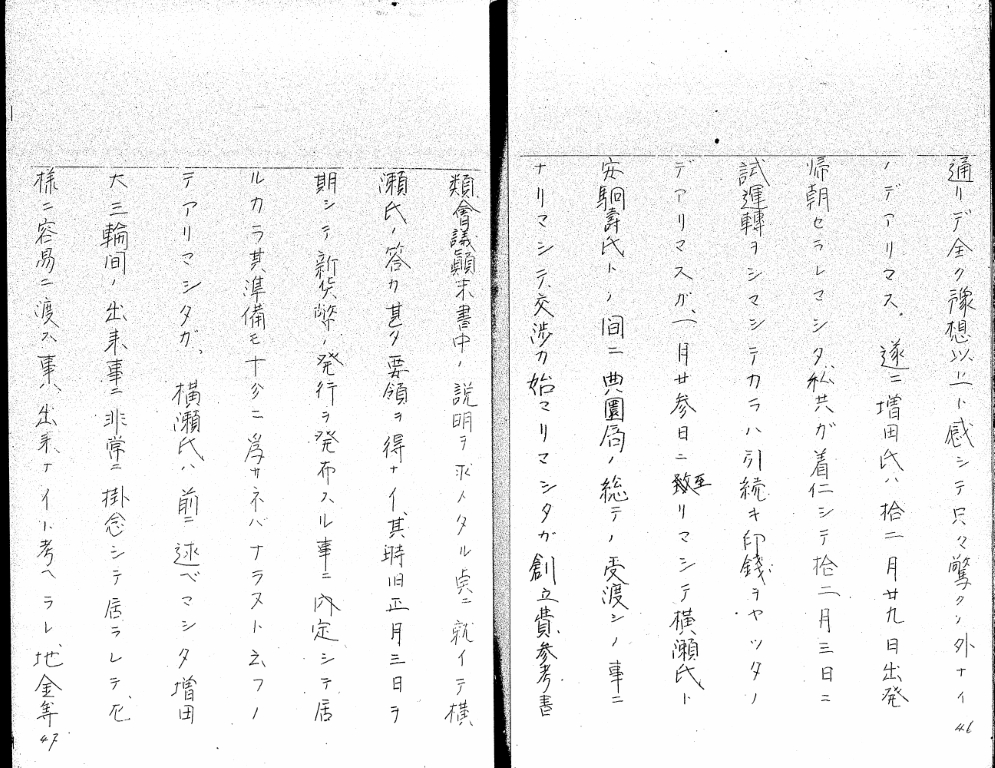 通リデ全ク豫想以上ト感シテ只々驚クノ外ナイ
ノデアリマス。遂ニ増田氏ハ拾二月廿九日出発
帰朝セラレマシタ私共ガ着仁シテ拾二月三日ニ
試運轉ヲシマシテカラハ引続キ印錢ヲヤッタノ
デアリマスガ、一月廿参日ニ至リマシテ横瀬氏ト
安駉壽氏トノ間ニ典圜局ノ総テノ受渡シノ事ニ
ナリマシテ交渉カ始マリマシタガ創立費参考書
46
類會議顛末書中ノ説明ヲ求メタル点ニ就イテ横
瀬氏ノ答カ甚タ要領ヲ得ナイ、其時旧正月三日ヲ
期シテ新貨幣ノ発行ヲ発布スル事ニ内定シテ居
ルカラ其準備モ十分ニ為サネバナラヌト云フノ
デアリマシタガ、横瀬氏ハ前ニ述ベマシタ増田
大三輪間ノ出来事ニ非常ニ掛念シテ居ラレテ、
様ニ容易ニ渡ス事ハ出来ナイト考ヘラレ、地金等
47